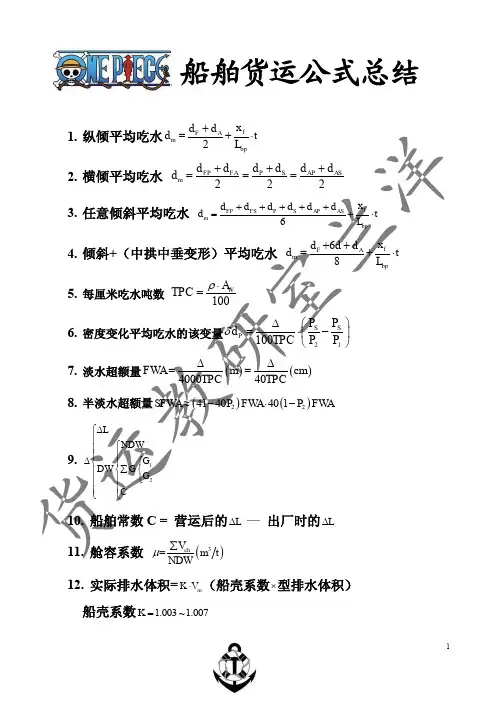 ONE PIECE 船舶货运公式总结
1. 纵倾平均吃水 d_m = (d_F + d_A)/2 + x_f/L_bp · t
2. 横倾平均吃水 d_m = (d_FP + d_FA)/2 = (d_P + d_S)/2 = (d_AP + d_AS)/2
3. 任意倾斜平均吃水 d_m = (d_FP + d_FS + d_P + d_S + d_AP + d_AS)/6 + x_f/L_bp · t
4. 倾斜+（中拱中垂变形）平均吃水 d_m = (d_F+6d+d_A)/8 + x_f/L_bp · t
5. 每厘米吃水吨数 TPC = ρ · A_W/100
6. 密度变化平均吃水的该变量 δd_ρ = Δ/100TPC (P_S/P_2 − P_S/P_1)
7. 淡水超额量 FWA = Δ/4000TPC (m) = Δ/40TPC (cm)
8. 半淡水超额量 SFWA≈(41−40P_2)FWA·40(1−P_2)FWA
9. Δ { ΔL
DW { NDW
∑G { G_1
G_2
C
10. 船舶常数 C = 营运后的ΔL — 出厂时的ΔL
11. 舱容系数 μ = ∑V_ch/NDW (m³/t)
12. 实际排水体积= K·V_m（船壳系数×型排水体积）
船壳系数 K = 1.003 ~ 1.007
货运教研室兰洋
1